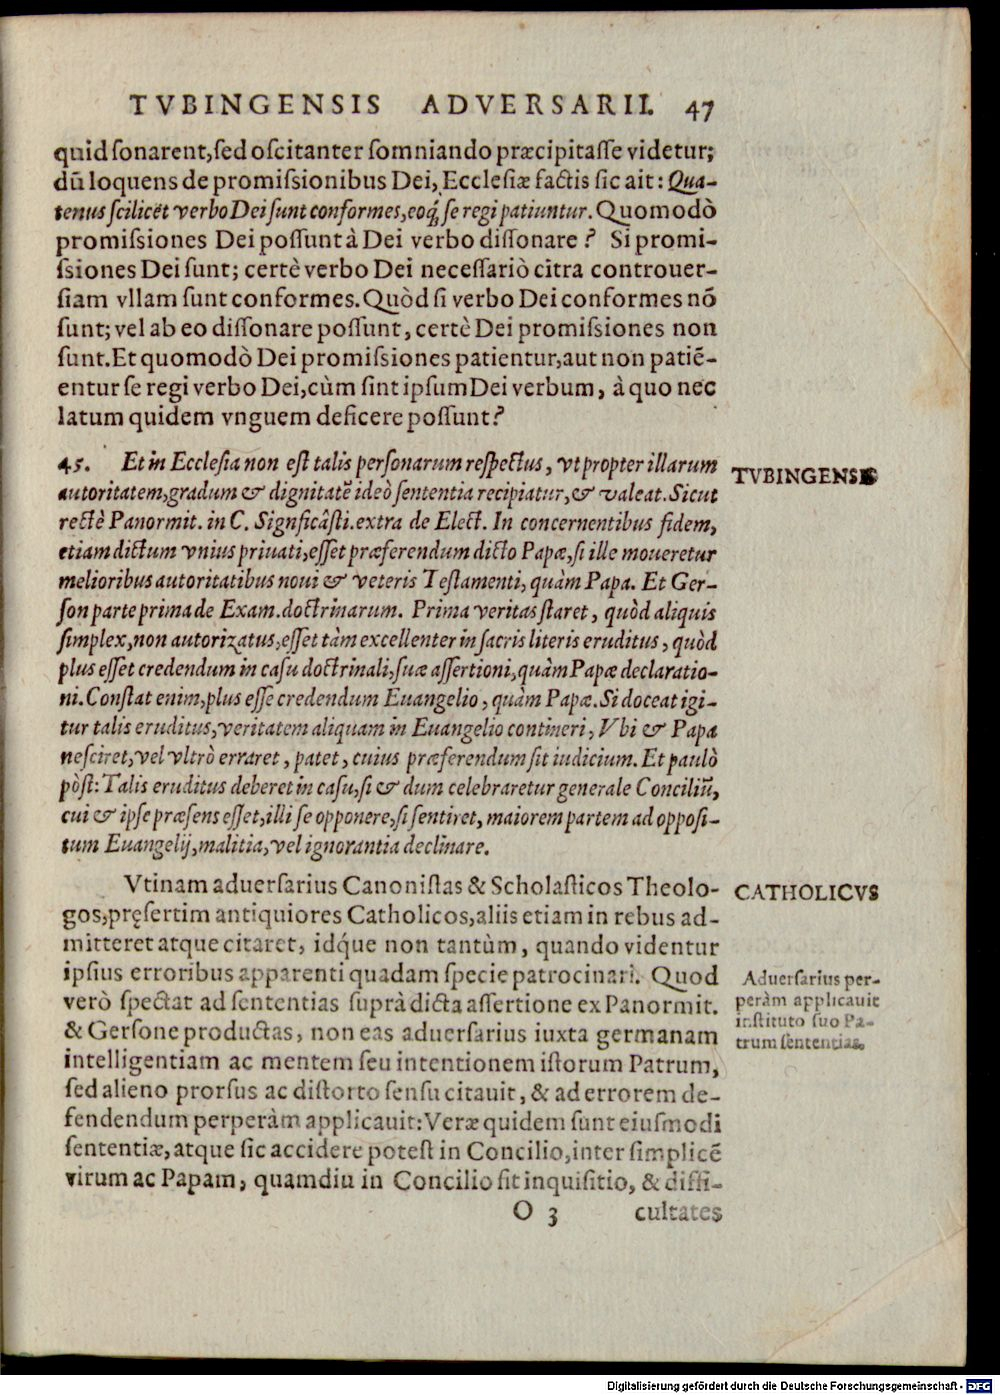 TVBINGENSIS ADVERSARII. 47
quid ſonarent, ſed oſcitanter ſomniando præcipitaſſe videtur;
dū loquens de promiſsionibus Dei, Eccleſiæ factis ſic ait: Qua-
tenus ſcilicet verbo Dei ſunt conformes, eoq́; ſe regi patiuntur. Quomodò
promiſsiones Dei poſſunt à Dei verbo diſſonare? Si promi-
ſsiones Dei ſunt; certè verbo Dei neceſſariò citra controuer-
ſiam vllam ſunt conformes. Quòd ſi verbo Dei conformes nō
ſunt; vel ab eo diſſonare poſſunt, certè Dei promiſsiones non
ſunt. Et quomodò Dei promiſsiones patientur, aut non patiē-
entur ſe regi verbo Dei, cùm ſint ipſum Dei verbum, à quo nec
latum quidem vnguem deficere poſſunt?
45. Et in Eccleſia non eſt talis perſonarum reſpectus, vt propter illarum
autoritatem, gradum & dignitatē ideò ſententia recipiatur, & valeat. Sicut
rectè Panormit. in C. Signficâſti. extra de Elect. In concernentibus fidem,
etiam dictum vnius priuati, eſſet præferendum dicto Papæ, ſi ille moueretur
melioribus autoritatibus noui & veteris Teſtamenti, quàm Papa. Et Ger-
ſon parte prima de Exam. doctrinarum. Prima veritas ſtaret, quòd aliquis
ſimplex, non autorizatus, eſſet tàm excellenter in ſacris literis eruditus, quòd
plus eſſet credendum in caſu doctrinali, ſuæ aſſertioni, quàm Papæ declaratio-
ni. Conſtat enim, plus eſſe credendum Euangelio, quàm Papæ. Si doceat igi-
tur talis eruditus, veritatem aliquam in Euangelio contineri, Vbi & Papa
neſciret, vel vltrò erraret, patet, cuius præferendum ſit iudicium. Et paulò
pòſt: Talis eruditus deberet in caſu, ſi & dum celebraretur generale Conciliū,
cui & ipſe præſens eſſet, illi ſe opponere, ſi ſentiret, maiorem partem ad oppoſi-
tum Euangelij, malitia, vel ignorantia declinare.
TVBINGENSIS
Vtinam aduerſarius Canoniſtas & Scholaſticos Theolo-
gos, pręſertim antiquiores Catholicos, aliis etiam in rebus ad-
mitteret atque citaret, idq́ue non tantùm, quando videntur
ipſius erroribus apparenti quadam ſpecie patrocinari. Quod
verò ſpectat ad ſententias ſuprà dicta aſſertione ex Panormit.
& Gerſone productas, non eas aduerſarius iuxta germanam
intelligentiam ac mentem ſeu intentionem iſtorum Patrum,
ſed alieno prorſus ac diſtorto ſenſu citauit, & ad errorem de-
fendendum perperàm applicauit: Veræ quidem ſunt eiuſmodi
ſententiæ, atque ſic accidere poteſt in Concilio, inter ſimplicē
virum ac Papam, quamdiu in Concilio ſit inquiſitio, & diffi-
CATHOLICVS
Aduerſarius per-
peràm applicauit
inſtituto ſuo Pa-
trum ſententias.
O 3 cultates
Digitalisierung gefördert durch die Deutsche Forschungsgemeinschaft - DFG